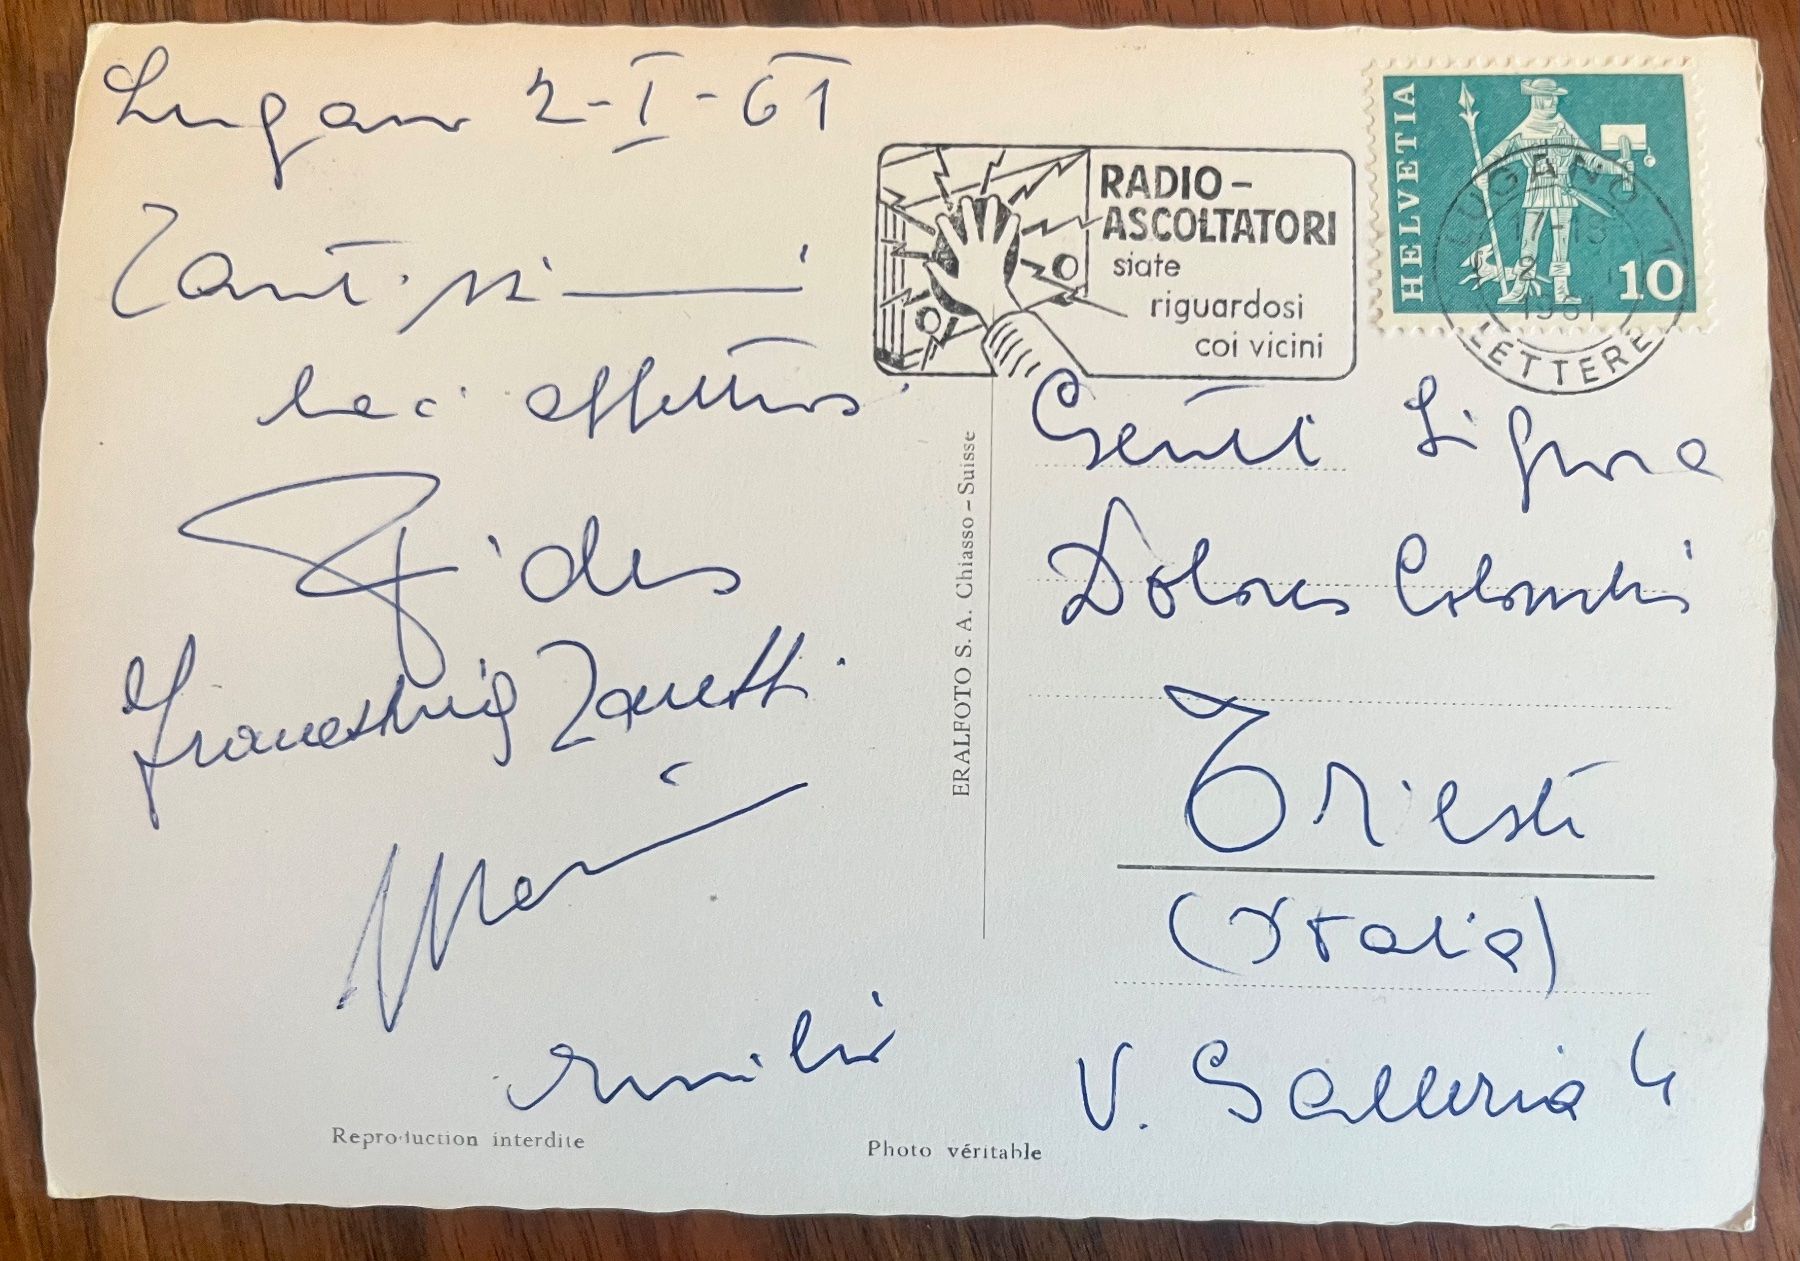 Lugano 2-I-61
Tantissimi
baci affettuosi
Fides
Franceschi Zanetti
Maria
Emilio
RADIO-
ASCOLTATORI
siate
riguardosi
coi vicini
HELVETIA
10
LUGANO
17-18
2
1961
LETTERE
ERALFOTO S. A. Chiasso-Suisse
Gent. Signora
Dolores Colombi
Trieste
(Italia)
V. Galleria 4
Reproduction interdite
Photo véritable